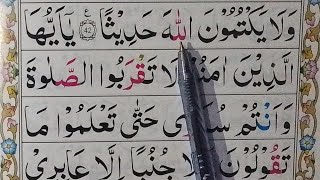 وَلَا يَكْتُمُونَ اللّٰهَ حَدِيْثًا ۝٤٢ يٰۤاَيُّهَا
الَّذِيْنَ اٰمَنُوْا لَا تَقْرَبُوا الصَّلٰوةَ
وَاَنْتُمْ سُكٰرٰى حَتّٰى تَعْلَمُوْا مَا
تَقُوْلُوْنَ وَلَا جُنُبًا اِلَّا عَابِرِيْ